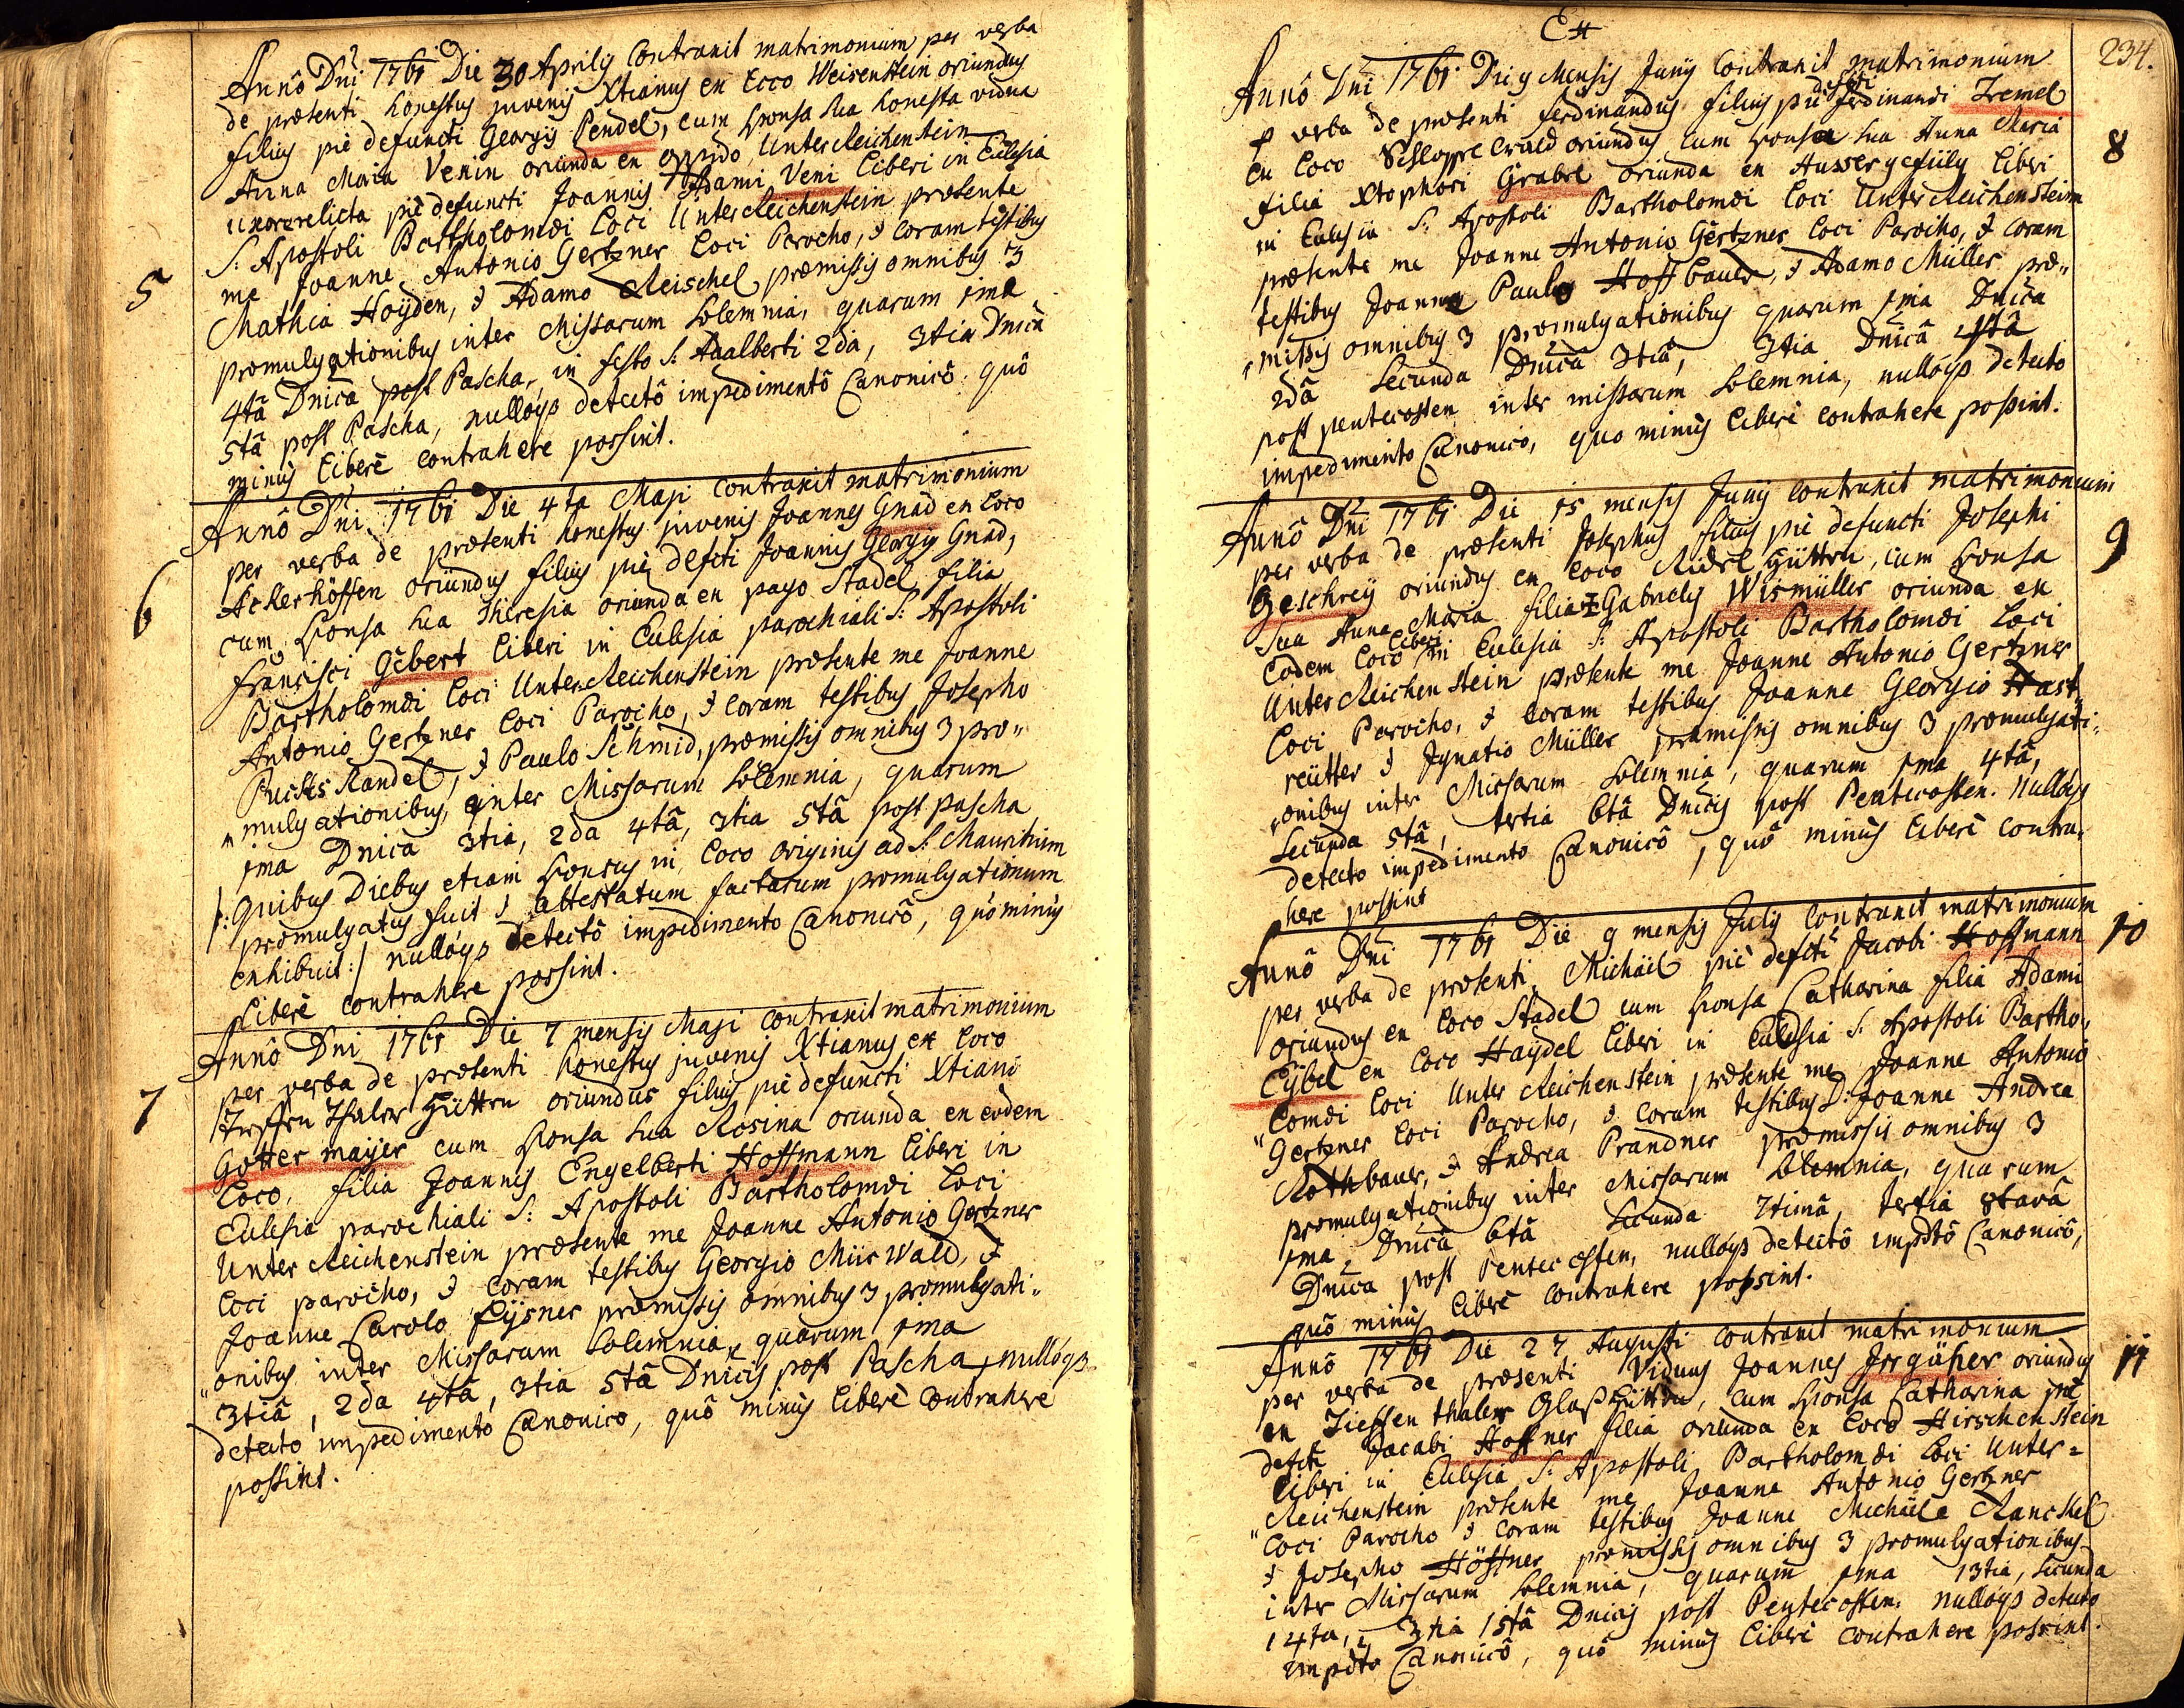 Annô Dnî 1761 Die 30 Aprilis Contraxit matrimonium per verba
de præsenti honestus juvenis Xtianus ex Loco Weisenstein oriundus
filius piè defuncti Georgij Pendel, cum sponsa sua honesta vidua
Anna Maria Venin oriunda ex oppido UnterReichenstein
uxore relicta piè defuncti Joannis Adami Veni liberi in Eclesia
S: Apostoli Bartholomæi Loci UnterReichenstein præsente
me Joanne Antonio Gertzner Loci Parocho, & coram testibus
5
Mathia Hoÿden, & Adamo Reischel præmissis omnibus 3
promulgationibus inter Missarum solemnia, quarum 1ma
4tâ Dnica post Pascha, in festo S: Adalberti 2da, 3tia Dnica
5tâ post Pascha, nullóq3 detectô impedimentô Canonicô quô
minus liberè contrahere possint.
Annô Dnî 1761 Die 4ta Maji contraxit matrimonium
per verba de præsenti honestus juvenis Joannes Gnad ex Loco
6
Ackerhöffen oriundus filius piè defcti Joannis Georgij Gnad,
cum sponsa sua Theresia oriunda ex pago Stadel filia
Francisci Gebert liberi in Eclesia parochiali S: Apostoli
Bartholomæi Loci UnterReichenstein præsente me Joanne
Antonio Gertzner Loci Parocho, & coram testibus Josepho
Puchs Kandel, & Paulo Schmid, præmissis omnibus 3 pro„
„mulgationibus, inter Missarum solemnia, quarum
1ma Dnica 3tia, 2da 4tâ, 3tia 5tâ post Pascha
/: quibus Diebus etiam sponsus in Loco originis ad S: Mauritium
promulgatus fuit & attestatum factarum promulgationum
exhibuit :/ nullóq3 detectô impedimento Canonicô, quô minus
Liberè contrahere possint.
Annô Dnî 1761 Die 7 mensis Maji contraxit matrimonium
per verba de præsenti honestus juvenis Xtianus ex Loco
7
Hütten oriundus filius piè defuncti Xtiani
Gottermaijer cum sponsa sua Rosina oriunda ex eodem
Loco, filia Joannis Engelberti Hoffmann liberi in
Eclesia parochiali S: Apostoli Bartholomæi Loci
UnterReichenstein præsente me Joanne Antonio Gertzner
Loci parocho, & coram testibus Georgio Mürwald, &
Joanne Carolo Eÿsner præmissis omnibus 3 promulgati„
„onibus inter Missarum solemnia, quarum 1ma
3tiâ, 2da 4tâ, 3tia 5tâ Dnicis post Pascha, nullóq3
detecto impedimento Canonico, quô minus liberè contrahere
possint.
234.
Annô Dnî 1761 Die 9 Mensis Junij Contraxit matrimonium
defcti
p verba de præsenti Ferdinandus filius piè Ferdinandi Tremel
8
ex Loco oriundus, cum sponsa sua Anna Maria
filia Xtophori Grabel oriunda ex Aussergefiild liberi
in Eclesia S: Apostoli Bartholomæi Loci UnterReichenstein
præsente me Joanne Antonio Gertzner Loci Parocho, & coram
testibus Joanne Paulo Hoffbauer, & Adamo Müller præ„
„missis omnibus 3 promulgationibus quarum 1ma Dnica
2dâ secunda Dnica 3tiâ, 3tia Dnicâ 4tâ
post pentecosten inter missarum solemnia, nullóq3 detecto
impedimento Canonico, quo minus liberè contrahere possint.
Annô Dnî 1761 Die 15 mensis Junij contraxit matrimonium
per verba de præsenti Josephus filius piè defuncti Josephi
9
Geschreÿ oriundus ex Loco Hütten, cum sponsa
sua Anna Maria filia Gabrielis Wismüller oriunda ex
liberi
Eodem Loco in Eclesia S: Apostoli Bartholomæi Loci
UnterReichenstein præsente me Joanne Antonio Gertzner
Loci Parocho, & coram testibus Joanne Georgio Hast„
reütter & Ignatio Müller præmissis omnibus 3 promulgati„
„onibus inter Missarum solemnia, quarum 1ma 4tâ,
secunda 5tâ, tertia 6tâ Dnicis post Pentecosten. Nullóq3
detecto impedimento Canonicô, quô minus liberè contra„
here possint
Annô Dnî 1761 Die 9 mensis Julij contraxit matrimonium
per verba de præsenti Michäel piè defcti Jacobi Hoffmann
10
oriundus ex Loco Stadel cum sponsa Catharina filia Adami
Eÿbel ex Loco Haÿdel liberi in Eclesia S: Apostoli Bartho„
„lomæi Loci UnterReichenstein præsente me Joanne Antonio
Gertzner Loci Parocho, & coram testibus D: Joanne Andrea
Rothbauer, & Andrea Prandner præmissis omnibus 3
promulgationibus inter Missarum solemnia, quarum
1ma Dnicâ 6tâ secunda 7timâ, tertia 8tavâ
Dnica post Pentecosten, nullóq3 detectô impdtô Canonicô,
quô minus liberè contrahere possint.
Annô 1761 Die 27 Augusti contraxit matrimonium
per verba de præsenti Viduus Joannes Irrgäher oriundus
11
ex Tieffenthaler Glaßhütten, cum sponsa Catharina piè
defcti Jacobi Hoffner filia oriunda ex Loco Hirschenstein
liberi in Eclesia S: Apostoli Bartholomæi Loci Unter=
„Reichenstein præsente me Joanne Antonio Gertzner
Loci Parocho & coram testibus Joanne Michäele Ranckel
& Josepho Höffner præmissis omnibus 3 promulgationibus
inter Missarum solemnia, quarum 1ma 13tia, secunda
14ta, 3tia 15tâ Dnicis post Pentecosten, nullóq3 detecto
impdto Canonicô, quô minus liberè contrahere possint.